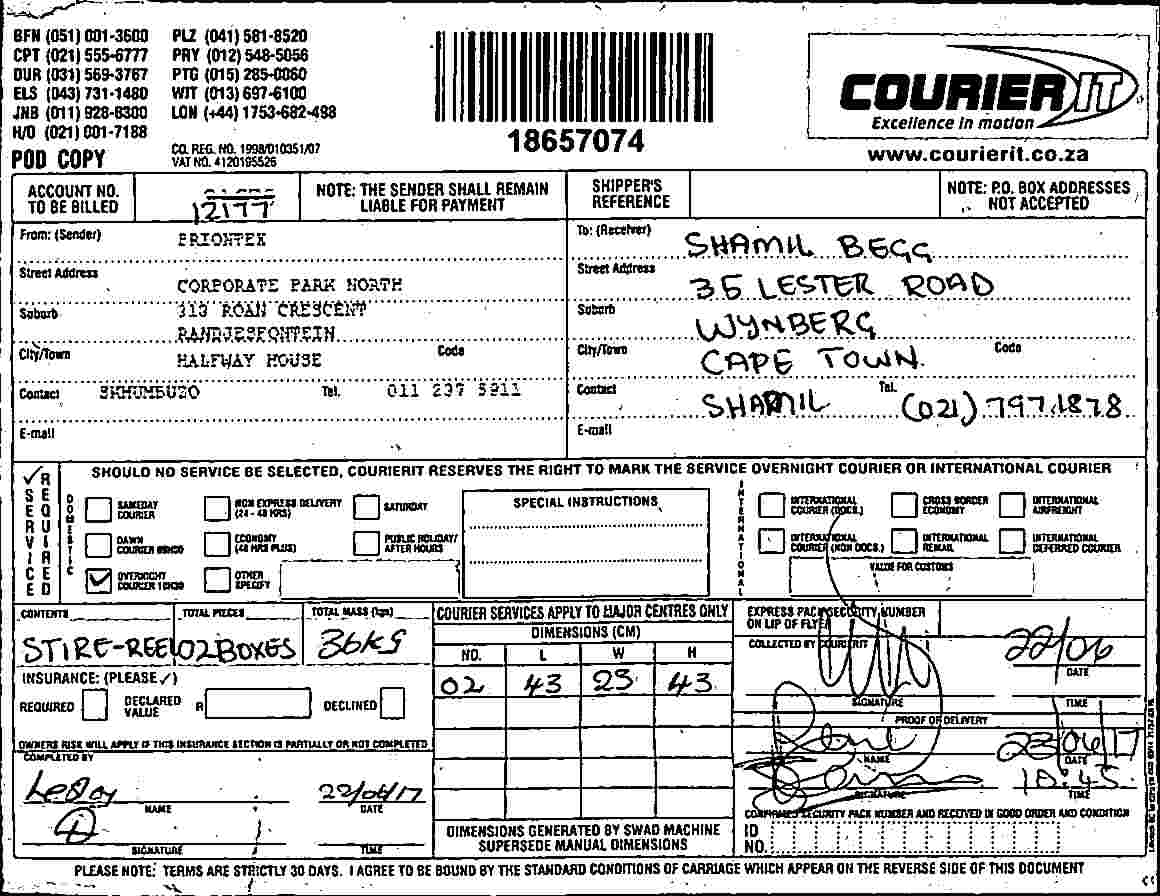 BFN (051) 001-3600 PLZ (041) 581-8520
CPT (021) 555-6777 PRY (012) 548-5056
DUR (031) 569-3767 PTG (015) 285-0060
ELS (043) 731-1480 WIT (013) 697-6100
JNB (011) 928-8300 LON (+44) 1753-682-498
H/O (021) 001-7188
POD COPY
CO. REG. NO. 1998/010351/07
VAT NO. 4120195526
18657074
COURIER IT
Excellence in motion
www.courierit.co.za
ACCOUNT NO. TO BE BILLED
12177
NOTE: THE SENDER SHALL REMAIN LIABLE FOR PAYMENT
SHIPPER'S REFERENCE
NOTE: P.O. BOX ADDRESSES NOT ACCEPTED
From: (Sender)
Street Address CORPORATE PARK NORTH
Suburb 313 ROAN CRESCENT
RANDJESFONTEIN
City/Town HALFWAY HOUSE Code
Contact Tel. 011 237 5911
E-mail
To: (Receiver) SHAMIL BEGG
Street Address 35 LESTER ROAD
Suburb WYNBERG
City/Town CAPE TOWN. Code
Contact SHAMIL Tel. (021) 797 1878
E-mail
SERVICE REQUIRED
SHOULD NO SERVICE BE SELECTED, COURIERIT RESERVES THE RIGHT TO MARK THE SERVICE OVERNIGHT COURIER OR INTERNATIONAL COURIER
DOMESTIC
SAMEDAY COURIER
NON EXPRESS DELIVERY (24 - 48 HRS)
SATURDAY
DAWN COURIER
ECONOMY (48 HRS PLUS)
PUBLIC HOLIDAY/ AFTER HOURS
OVERNIGHT COURIER 10H30
OTHER SPECIFY
SPECIAL INSTRUCTIONS
INTERNATIONAL
INTERNATIONAL COURIER (DOCS.)
CROSS BORDER ECONOMY
INTERNATIONAL AIRFREIGHT
INTERNATIONAL COURIER (NON DOCS.)
INTERNATIONAL REMAIL
INTERNATIONAL DEFERRED COURIER
VALUE FOR CUSTOMS
CONTENTS TOTAL PIECES TOTAL MASS (kgs)
STIRE-REEL 02 BOXES 36KG
INSURANCE: (PLEASE ✓)
REQUIRED DECLARED VALUE R DECLINED
OWNERS RISK WILL APPLY IF THIS INSURANCE SECTION IS PARTIALLY OR NOT COMPLETED
COMPLETED BY
22/06/17
NAME DATE
SIGNATURE TIME
COURIER SERVICES APPLY TO MAJOR CENTRES ONLY
DIMENSIONS (CM)
NO. L W H
02 43 23 43
DIMENSIONS GENERATED BY SWAD MACHINE SUPERSEDE MANUAL DIMENSIONS
EXPRESS PACK SECURITY NUMBER ON LIP OF FLYER
COLLECTED BY COURIERIT
22/06
DATE
SIGNATURE TIME
PROOF OF DELIVERY
23/06/17
NAME DATE
10:45
SIGNATURE TIME
CONFIRMED SECURITY PACK NUMBER AND RECEIVED IN GOOD ORDER AND CONDITION
ID NO.
PLEASE NOTE: TERMS ARE STRICTLY 30 DAYS. I AGREE TO BE BOUND BY THE STANDARD CONDITIONS OF CARRIAGE WHICH APPEAR ON THE REVERSE SIDE OF THIS DOCUMENT